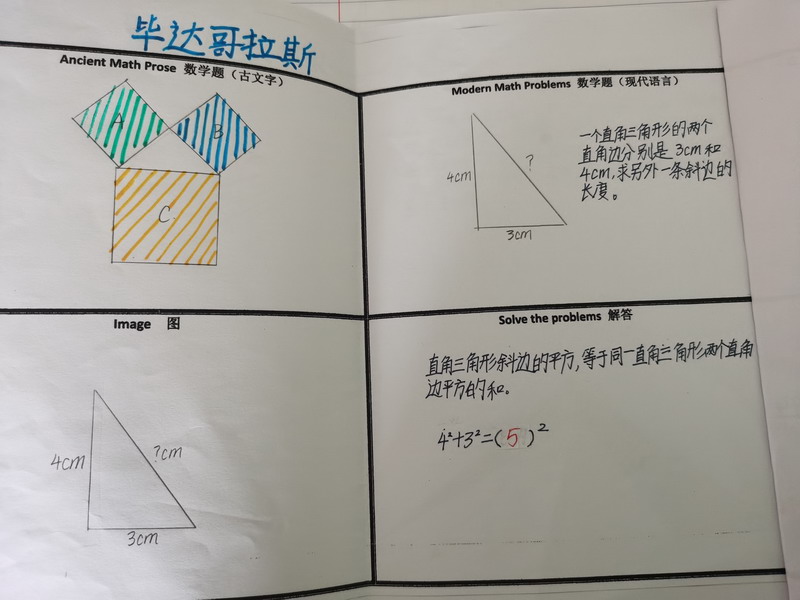 毕达哥拉斯
Ancient Math Prose 数学题（古文字）
A
B
C
Modern Math Problems 数学题（现代语言）
4cm
?
3cm
一个直角三角形的两个
直角边分别是 3cm 和
4cm,求另外一条斜边的
长度。
Image 图
4cm
?cm
3cm
Solve the problems 解答
直角三角形斜边的平方,等于同一直角三角形两个直角
边平方的和。
4²+3²=(5)²